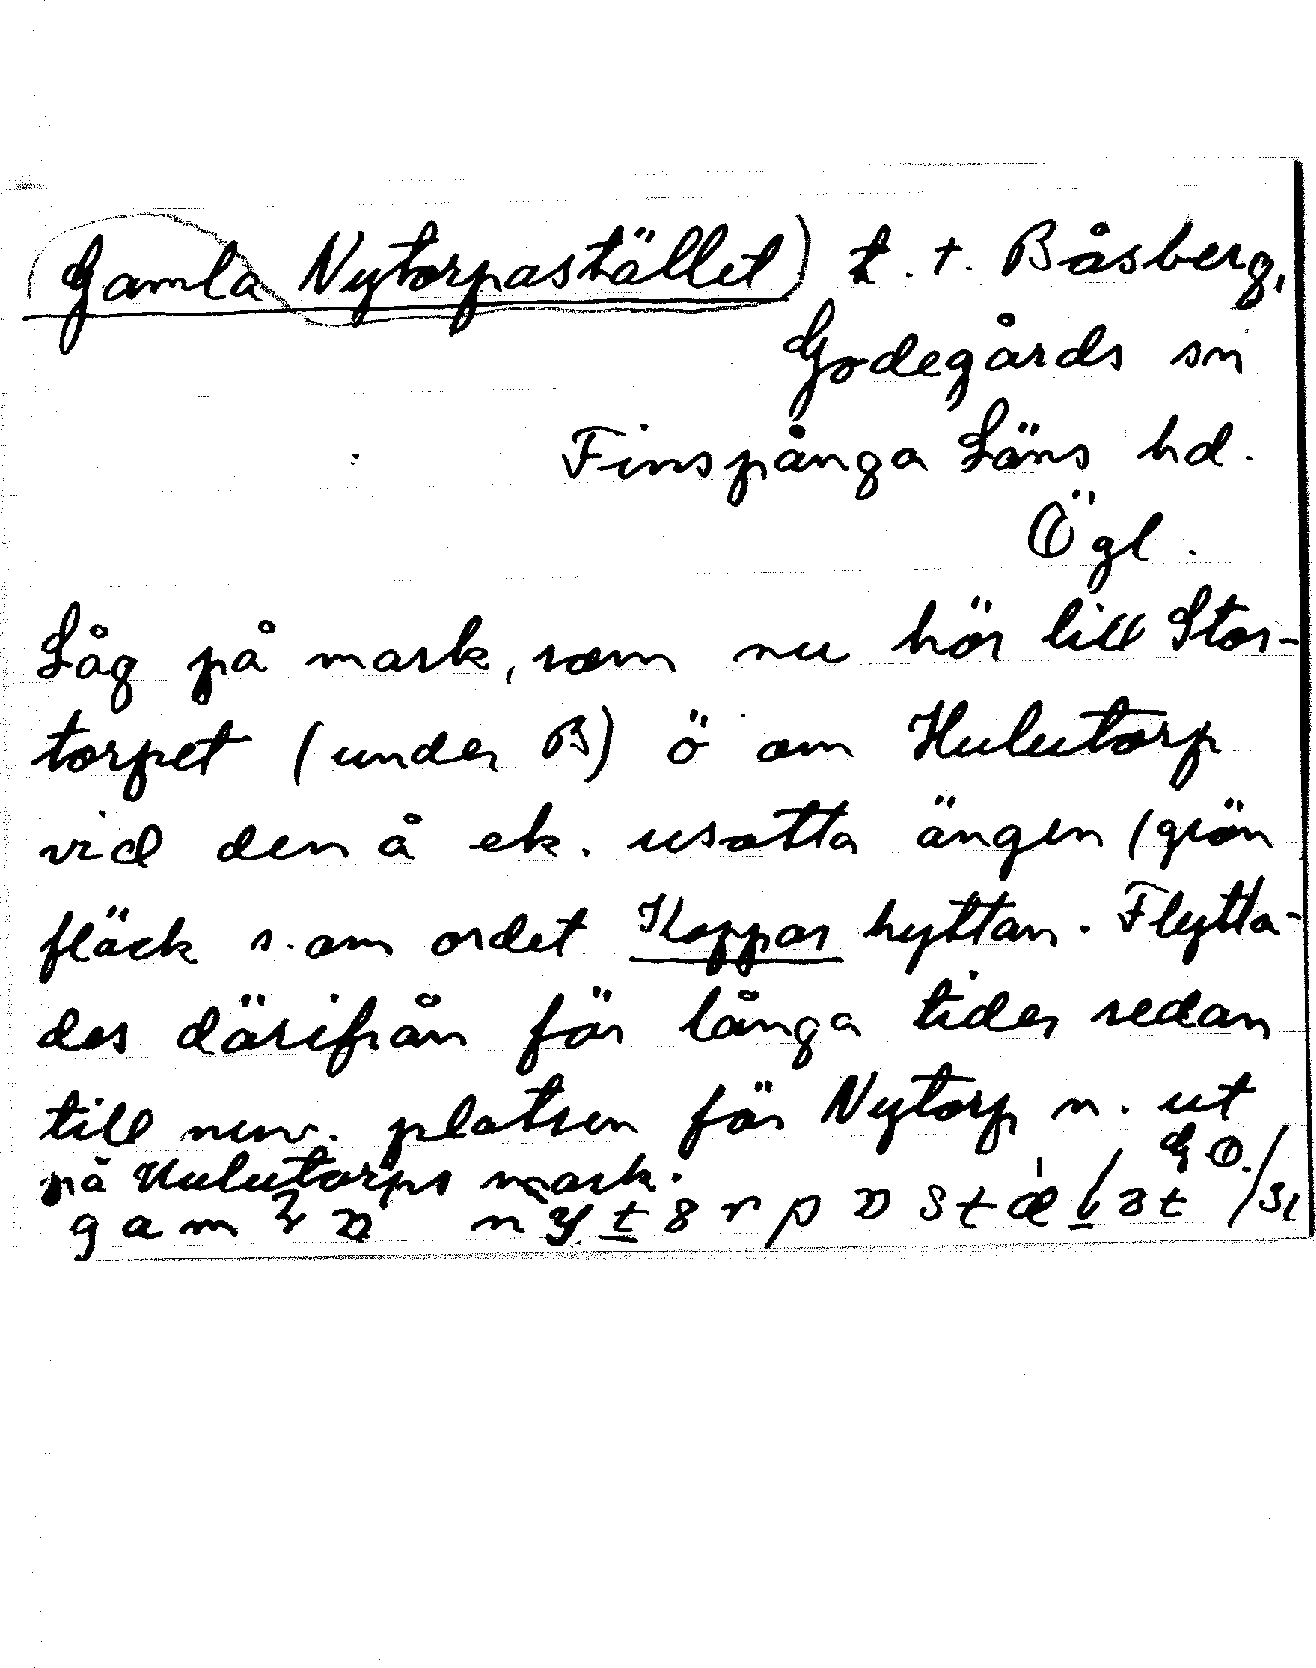 Gamla Nytorpastället) t. t. Båsberg,
Godegårds sn
Finspånga Läns hd.
Ögl.
Låg på mark, som nu hör till Stor-
torpet (under B) ö om Hulutorp
vid den å ek. utsatta ängen (grön
fläck s. om ordet Koppar hyttan. Flytta-
des därifrån för långa tider sedan
till nuv. platsen för Nytorp n. ut
på Hulutorps mark.
G O.